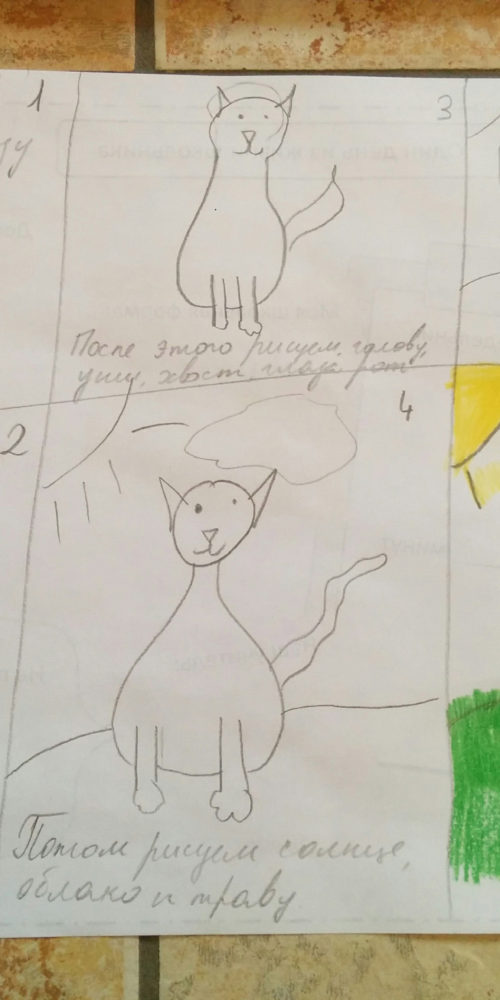 1
3
После этого рисуем, голову,
уши, хвост, глаза рот
2
4
Потом рисуем солнце,
облако и траву.